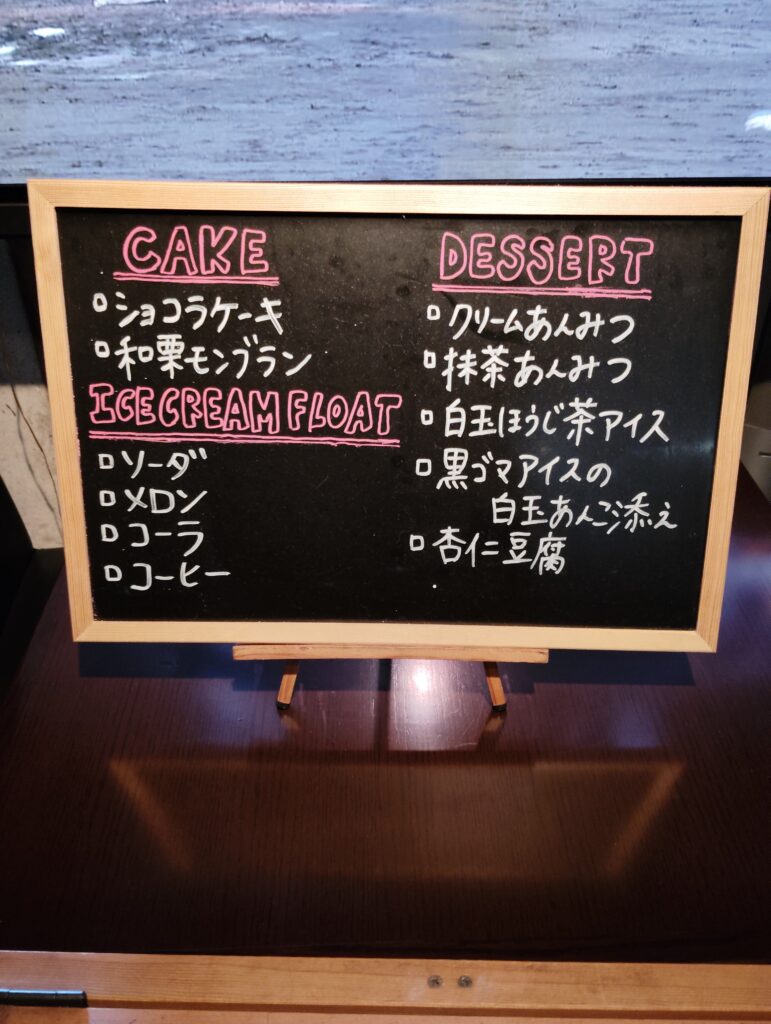 CAKE
ショコラケーキ
和栗モンブラン
ICE CREAM FLOAT
ソーダ
メロン
コーラ
コーヒー
DESSERT
クリームあんみつ
抹茶あんみつ
白玉ほうじ茶アイス
黒ゴマアイスの
白玉あんこ添え
杏仁豆腐